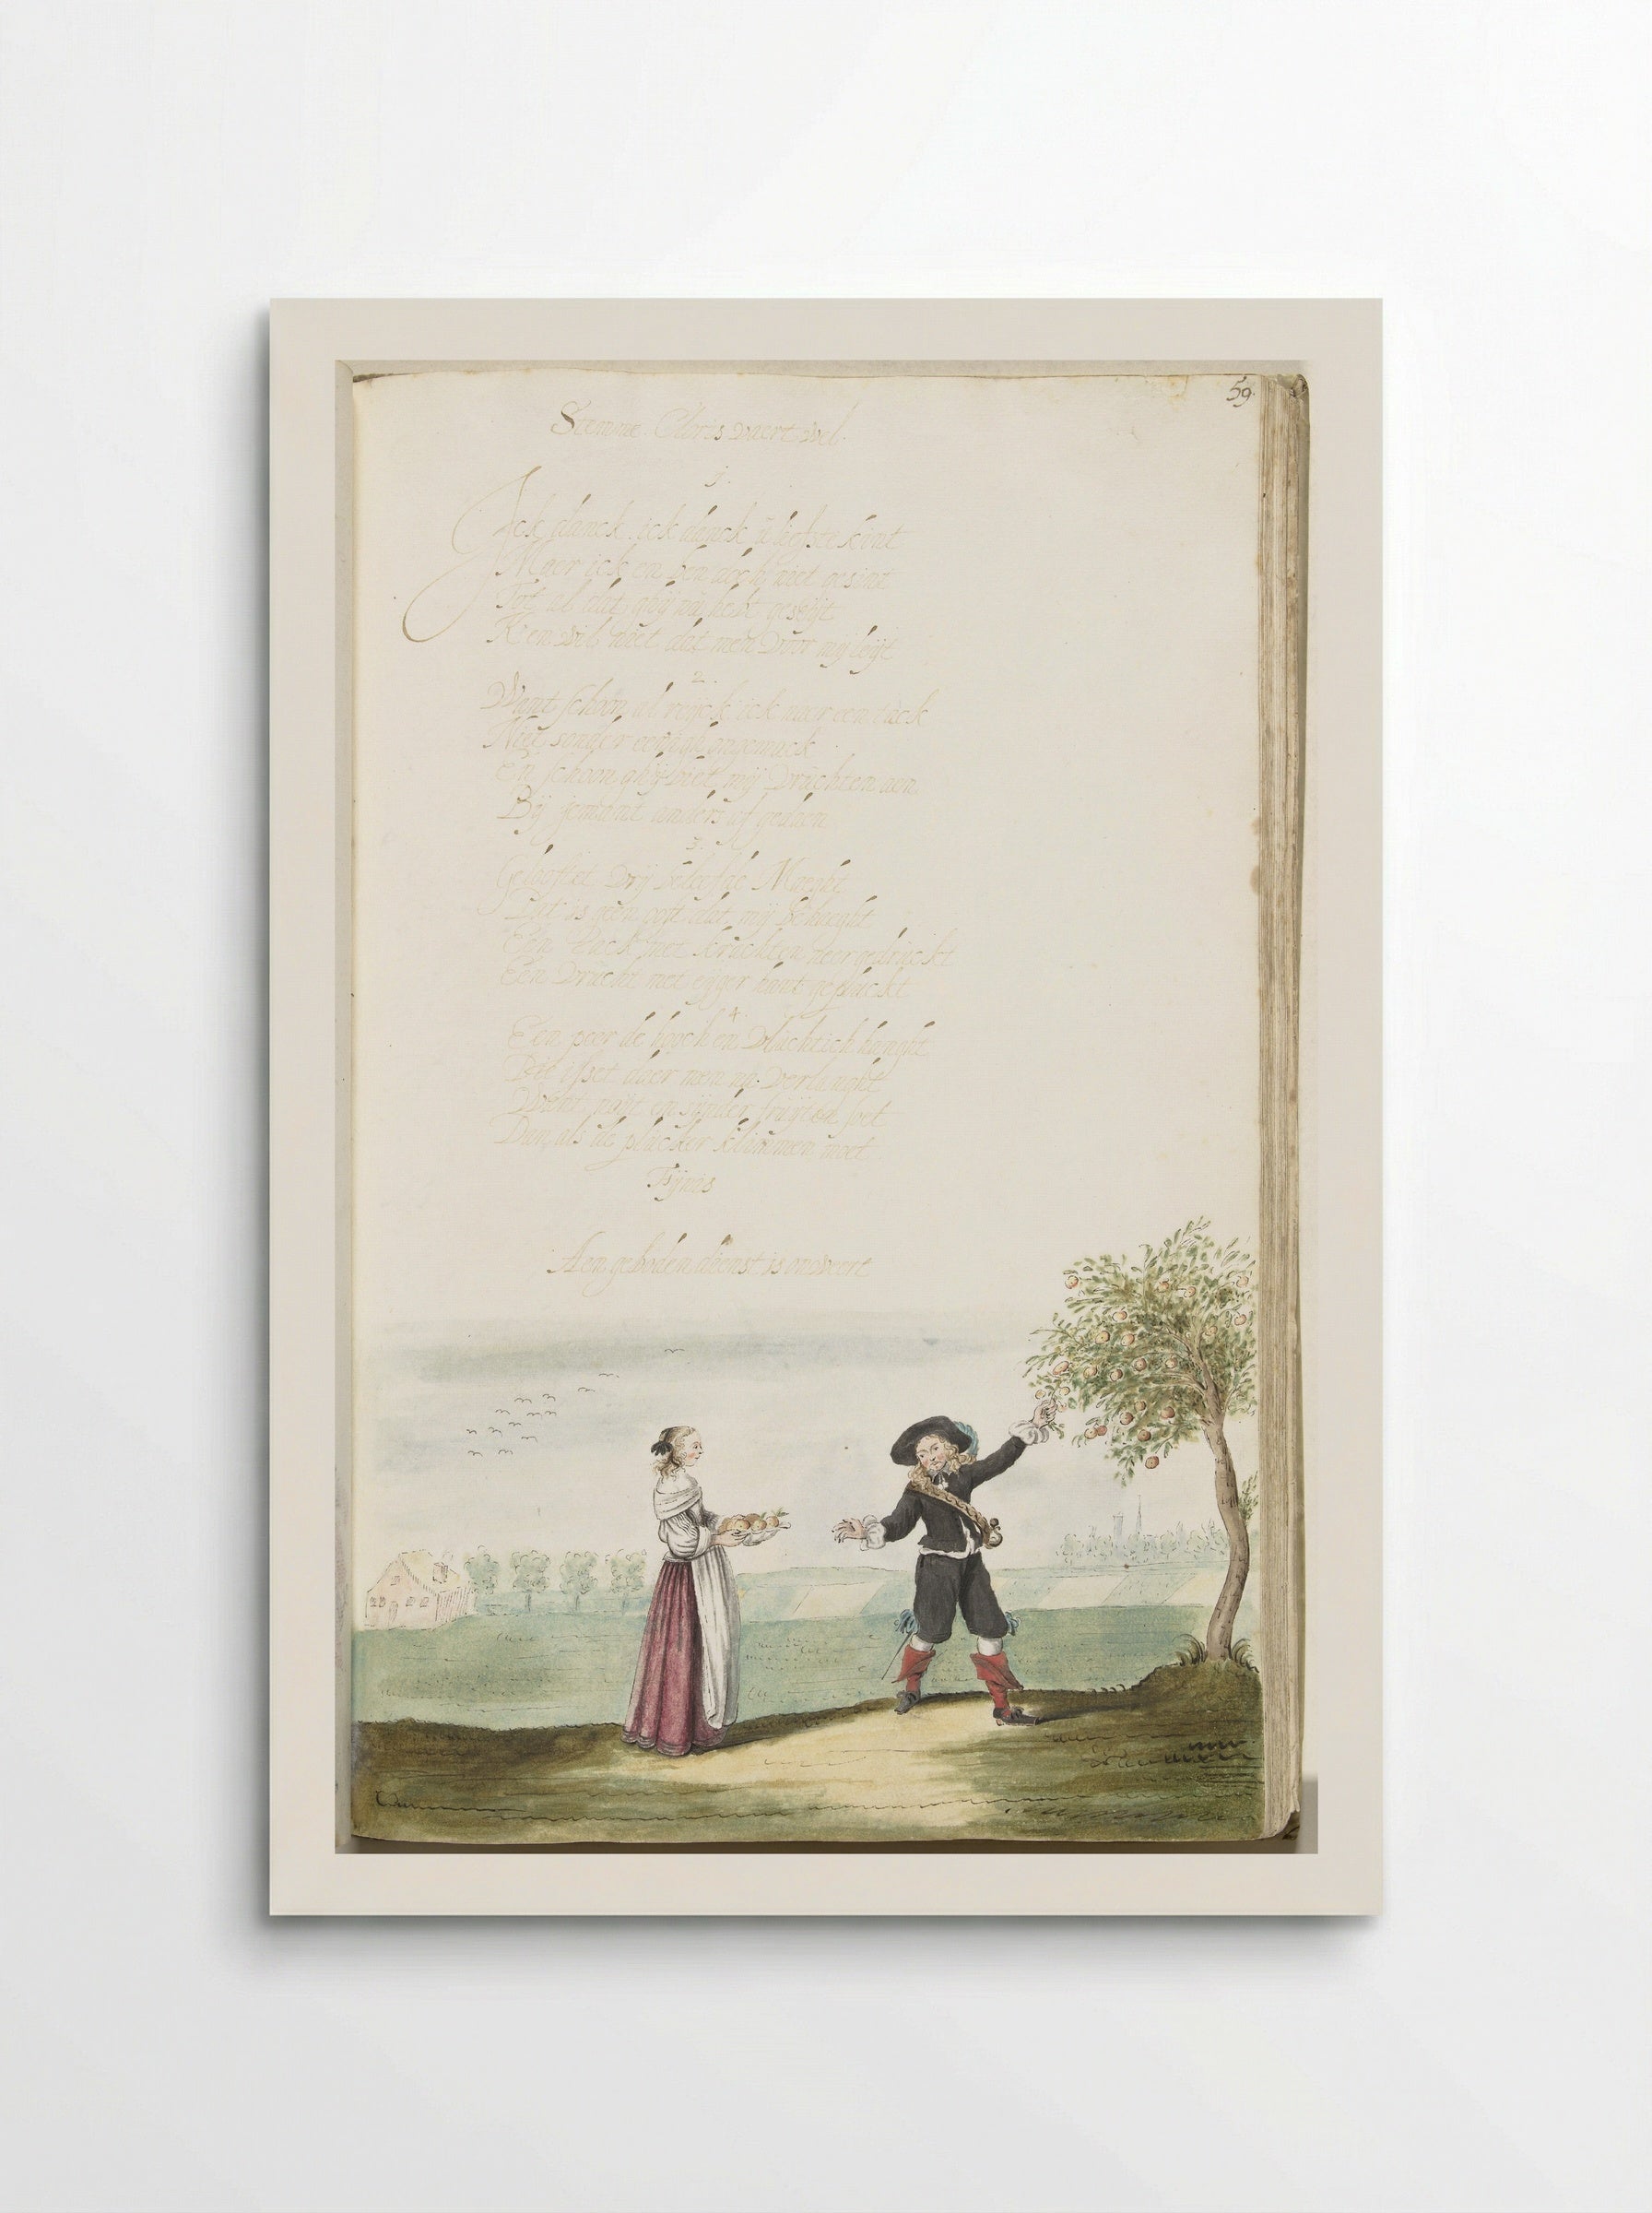 59.
Stemme. Cloris vaert wel.
1.
Ick danck, ick danck u liefste kint
Maer ick en ben noch niet gesint
Tot al dat ghij mij hebt geseijt
K en wil niet dat men voor mij leijt
2.
Want schoon al reijck ick naer een tack
Niet sonder eenigh ongemack
En schoon ghij biet mij vruchten aen
Bij jemant anders af gedaen
3.
Gelooftet vrij beleefde Maeght
Dat is geen ooft dat mij behaeght
Een tack met krachten neergedruckt
Een vrucht met eijger hant gepluckt
4.
Een peer de hooch en vluchtich hanght
Dit isset daer men na verlanght
Want noijt en sijnder fruijten soet
Dan als de plucker klimmen moet
Fijnis
Aen geboden dienst is onweert